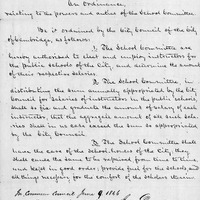 An Ordinance,
relating to the powers and duties of the School Committee.
Be it ordained by the City Council of the City
of Cambridge, as follows:
1. The School Committee are
hereby authorized to elect and employ instructors for
the Public Schools of the City, and determine the amount
of their respective salaries.
2. The School Committee in
distributing the sum annually appropriated by the City
Council for salaries of instructors in the public schools,
shall so fix and graduate the amount of salary of each
instructor, that the aggregate amount of all such sala-
ries shall in no case exceed the sum so appropriated
by the City Council.
3. The School Committee shall
have the care of the School houses of the City, they
shall cause the same to be repaired from time to time
and kept in good order; procure fuel for the schools and
all things necessary for the comfort of the scholars therein
In Common Council June 9, 1846